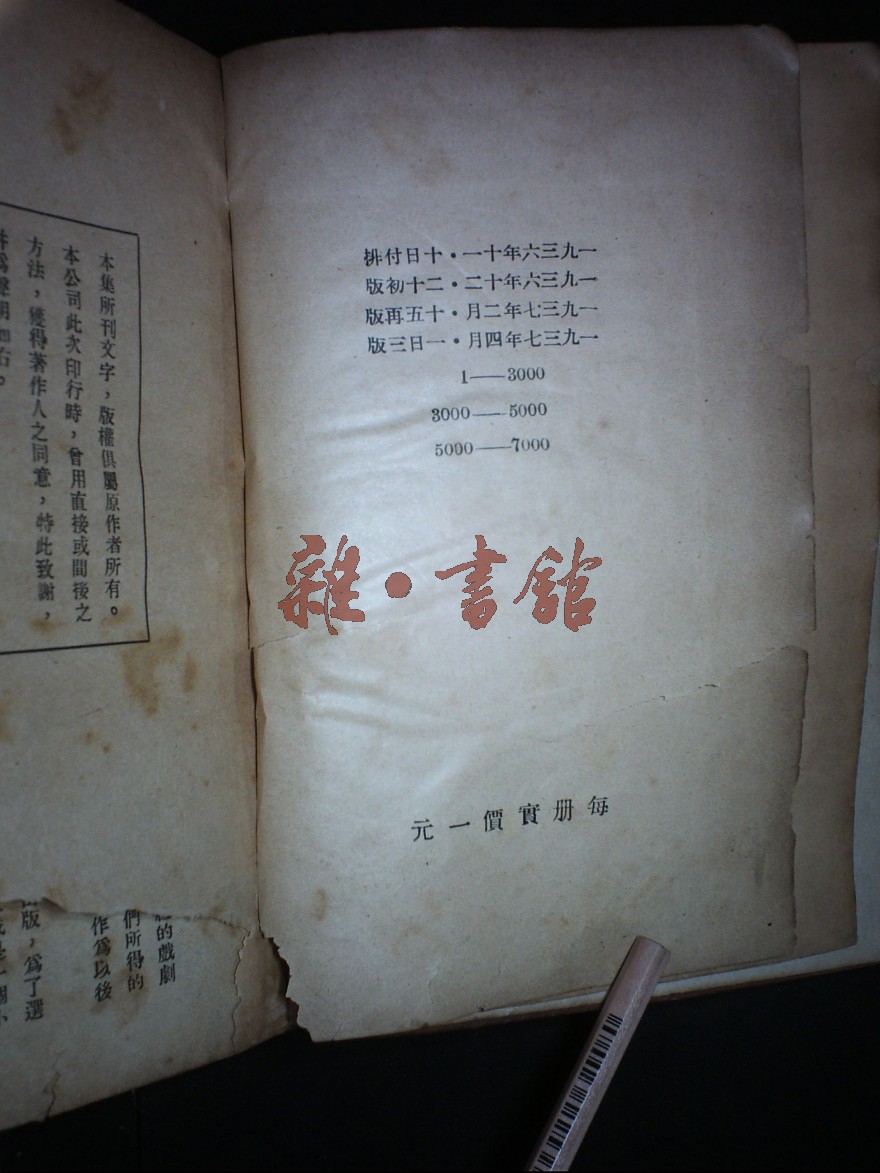 本集所刊文字，版權俱屬原作者所有。
本公司此次印行時，曾用直接或間後之
方法，獲得著作人之同意，特此致謝，
并爲聲明如右。
的戲劇
們所得的
作爲以後
版，爲了選
一九三六年十一・十日付排
一九三六年十二・二十初版
一九三七年二月・十五再版
一九三七年四月・一日三版
1——3000
3000——5000
5000——7000
雜・書館
每册實價一元